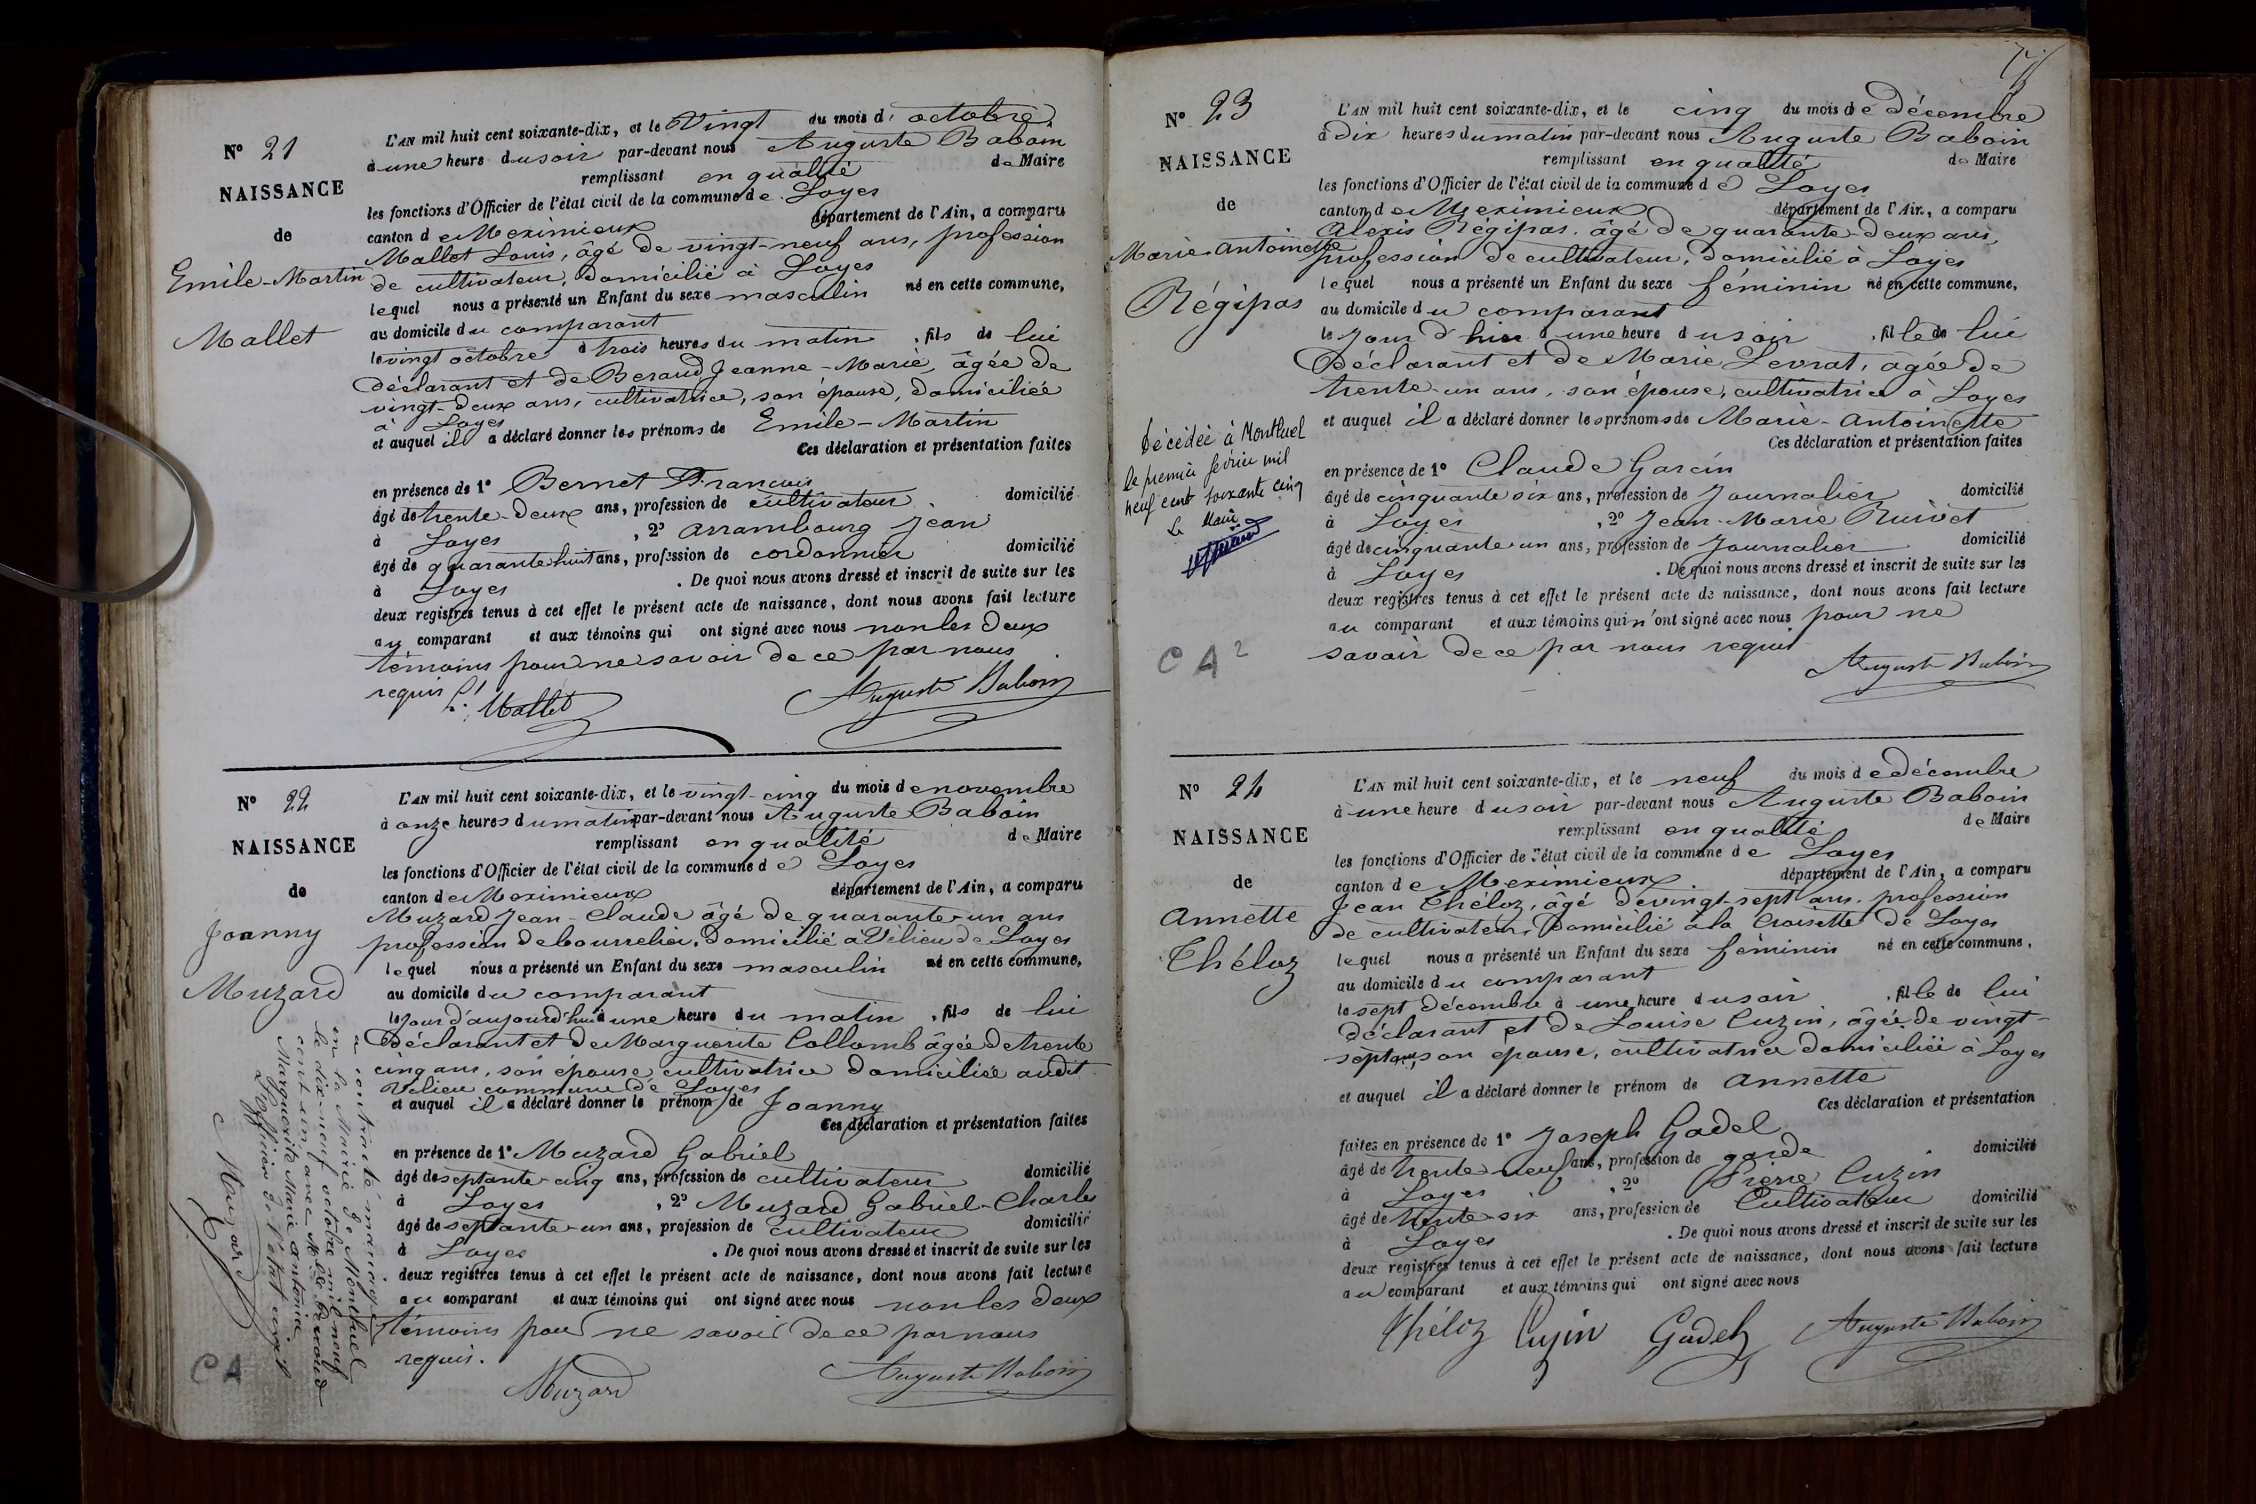 N° 21
NAISSANCE
de
Emile-Martin
Mallet
L'AN mil huit cent soixante-dix, et le Vingt du mois d' octobre
à une heure du soir par-devant nous Auguste Baboin
remplissant en qualité de Maire
les fonctions d'Officier de l'état civil de la commune de Loyes
canton de Meximieux département de l'Ain, a comparu
Mallet Louis, âgé de vingt-neuf ans, profession
de cultivateur, domicilié à Loyes
lequel nous a présenté un Enfant du sexe masculin né en cette commune,
au domicile du comparant
le vingt octobre à trois heures du matin, fils de lui
Déclarant et de Beraud Jeanne-Marie, âgée de
vingt-deux ans, cultivatrice, son épouse, domiciliée
à Loyes
et auquel il a déclaré donner les prénoms de Emile-Martin
Ces déclaration et présentation faites
en présence de 1° Bernet François
âgé de trente-deux ans, profession de cultivateur domicilié
à Loyes, 2° Arrambourg Jean
âgé de quarante huit ans, profession de cordonnier domicilié
à Loyes. De quoi nous avons dressé et inscrit de suite sur les
deux registres tenus à cet effet le présent acte de naissance, dont nous avons fait lecture
au comparant et aux témoins qui ont signé avec nous non les deux
témoins pour ne savoir de ce par nous
requis
L. Mallet Auguste Baboin
N° 22
NAISSANCE
de
Joanny
Muzard
L'AN mil huit cent soixante-dix, et le vingt-cinq du mois de novembre
à onze heures du matin par-devant nous Auguste Baboin
remplissant en qualité de Maire
les fonctions d'Officier de l'état civil de la commune de Loyes
canton de Meximieux département de l'Ain, a comparu
Muzard Jean-Claude âgé de quarante-un ans
profession de bourrelier, domicilié à Vélieu de Loyes
lequel nous a présenté un Enfant du sexe masculin né en cette commune,
au domicile du comparant
le jour d'aujourd'hui à une heure du matin, fils de lui
Déclarant et de Marguerite Collomb âgée de trente
cinq ans, son épouse cultivatrice domiciliée audit
Vélieu commune de Loyes
et auquel il a déclaré donner le prénom de Joanny
Ces déclaration et présentation faites
en présence de 1° Muzard Gabriel
âgé de septante-cinq ans, profession de cultivateur domicilié
à Loyes, 2° Muzard Gabriel-Charles
âgé de septante-un ans, profession de cultivateur domicilié
à Loyes. De quoi nous avons dressé et inscrit de suite sur les
deux registres tenus à cet effet le présent acte de naissance, dont nous avons fait lecture
au comparant et aux témoins qui ont signé avec nous non les deux
témoins pour ne savoir de ce par nous
requis.
Muzard Auguste Baboin
a contracté mariage
en la Mairie de Montluel
le dix-neuf octobre mil neuf
cent un avec Mlle
Marguerite Marie Antonia
L'officier de l'état civil
CA
N° 23
NAISSANCE
de
Marie-Antoinette
Régipas
L'AN mil huit cent soixante-dix, et le cinq du mois de décembre
à dix heures du matin par-devant nous Auguste Baboin
remplissant en qualité de Maire
les fonctions d'Officier de l'état civil de la commune de Loyes
canton de Meximieux département de l'Ain, a comparu
Alexis Régipas, âgé de quarante-deux ans,
profession de cultivateur, domicilié à Loyes
lequel nous a présenté un Enfant du sexe féminin né en cette commune,
au domicile du comparant
le jour d'hier à une heure du soir, fille de lui
Déclarant et de Marie Levrat, âgée de
trente-un ans, son épouse, cultivatrice à Loyes
et auquel il a déclaré donner les prénoms de Marie-Antoinette
Ces déclaration et présentation faites
en présence de 1° Claude Garcin
âgé de cinquante six ans, profession de Journalier domicilié
à Loyes, 2° Jean-Marie Ruivet
âgé de cinquante-un ans, profession de Journalier domicilié
à Loyes. De quoi nous avons dressé et inscrit de suite sur les
deux registres tenus à cet effet le présent acte de naissance, dont nous avons fait lecture
au comparant et aux témoins qui n'ont signé avec nous pour ne
savoir de ce par nous requis
Auguste Baboin
Décédée à Montluel
le premier février mil
neuf cent soixante cinq
Le Maire
CA2
N° 24
NAISSANCE
de
Annette
Théloz
L'AN mil huit cent soixante-dix, et le neuf du mois de décembre
à une heure du soir par-devant nous Auguste Baboin
remplissant en qualité de Maire
les fonctions d'Officier de l'état civil de la commune de Loyes
canton de Meximieux département de l'Ain, a comparu
Jean Théloz, âgé de vingt-sept ans, profession
de cultivateur, domicilié à la Croisette de Loyes
lequel nous a présenté un Enfant du sexe féminin né en cette commune,
au domicile du comparant
le sept décembre à une heure du soir, fille de lui
déclarant et de Louise Cuzin, âgée de vingt-
sept ans, son épouse, cultivatrice domiciliée à Loyes
et auquel il a déclaré donner le prénom de Annette
Ces déclaration et présentation
faites en présence de 1° Joseph Gadel
âgé de trente-neuf ans, profession de garde domicilié
à Loyes, 2° Pierre Cuzin
âgé de trente-six ans, profession de Cultivateur domicilié
à Loyes. De quoi nous avons dressé et inscrit de suite sur les
deux registres tenus à cet effet le présent acte de naissance, dont nous avons fait lecture
au comparant et aux témoins qui ont signé avec nous
Théloz Cuzin Gadel Auguste Baboin